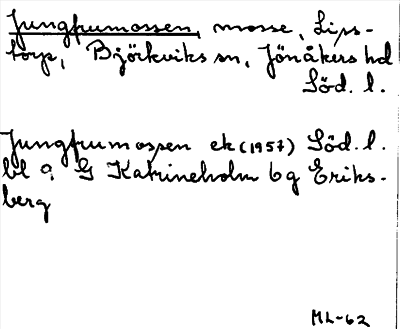 Jungfrumossen, mosse, Lips-
torp, Björkviks sn, Jönåkers hd
Söd. l.
Jungfrumossen ek (1957) Söd. l.
bl 9 G Katrineholm 6g Eriks-
berg
ML-62